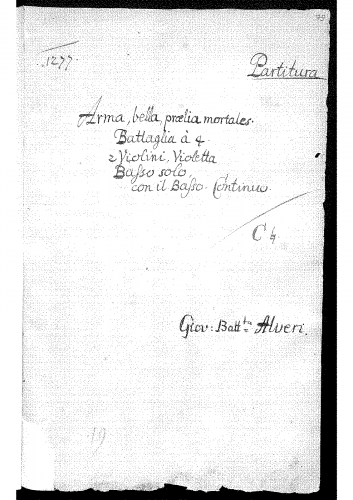 1277.
Partitura
Arma, bella, prœlia mortales.
Battaglia à 4
2 Violini, Violetta
Basso solo,
con il Basso Continuo
C 4
Giov: Battta Alveri.
19